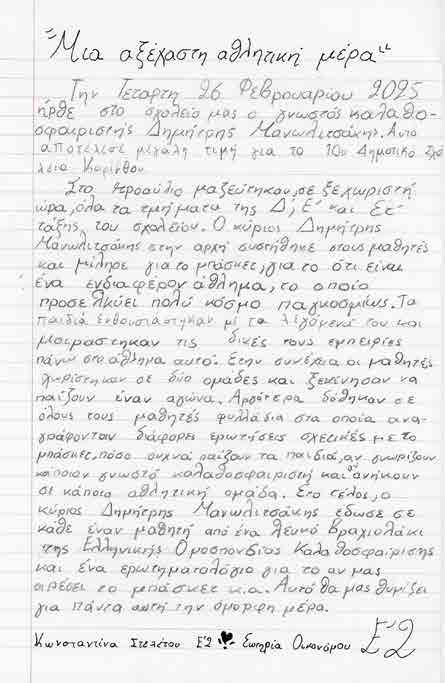 "Μια αξέχαστη αθλητική μέρα"
Την Τετάρτη 26 Φεβρουαρίου 2025
ήρθε στο σχολείο μας ο γνωστός καλαθο-
σφαιριστής Δημήτρης Μανωλιτσάκης. Αυτό
αποτέλεσε μεγάλη τιμή για το 10ο Δημοτικό Σχο
λείο Κορίνθου.
Στο προαύλιο μαζεύτηκαν, σε ξεχωριστή
ώρα, όλα τα τμήματα της Δ', Ε' και Στ'
τάξης του σχολείου. Ο κύριος Δημήτρης
Μανωλιτσάκης στην αρχή συστήθηκε στους μαθητές
και μίλησε για το μπάσκετ, για το ότι είναι
ένα ενδιαφέρον άθλημα, το οποίο
προσελκύει πολύ κόσμο παγκοσμίως. Τα
παιδιά ενθουσιάστηκαν με τα λεγόμενά του και
μοιράστηκαν τις δικές τους εμπειρίες
πάνω στο άθλημα αυτό. Στην συνέχεια οι μαθητές
χωρίστηκαν σε δύο ομάδες και ξεκίνησαν να
παίζουν έναν αγώνα. Αργότερα δόθηκαν σε
όλους τους μαθητές φυλλάδια στα οποία ανα-
γράφονταν διάφορες ερωτήσεις σχετικές με το
μπάσκετ, πόσο συχνά παίζουν τα παιδιά, αν γνωρίζουν
κάποιον γνωστό καλαθοσφαιριστή και αν ανήκουν
σε κάποια αθλητική ομάδα. Στο τέλος, ο
κύριος Δημήτρης Μανωλιτσάκης έδωσε σε
κάθε έναν μαθητή από ένα λευκό βραχιολάκι
της Ελληνικής Ομοσπονδίας Καλαθοσφαίρισης
και ένα ερωτηματολόγιο για το αν μας
αρέσει το μπάσκετ κ.α. Αυτό θα μας θυμίζει
για πάντα αυτή την όμορφη μέρα.
Κωνσταντίνα Στελέτου Ε'2 Σωτηρία Οικονόμου Ε'2